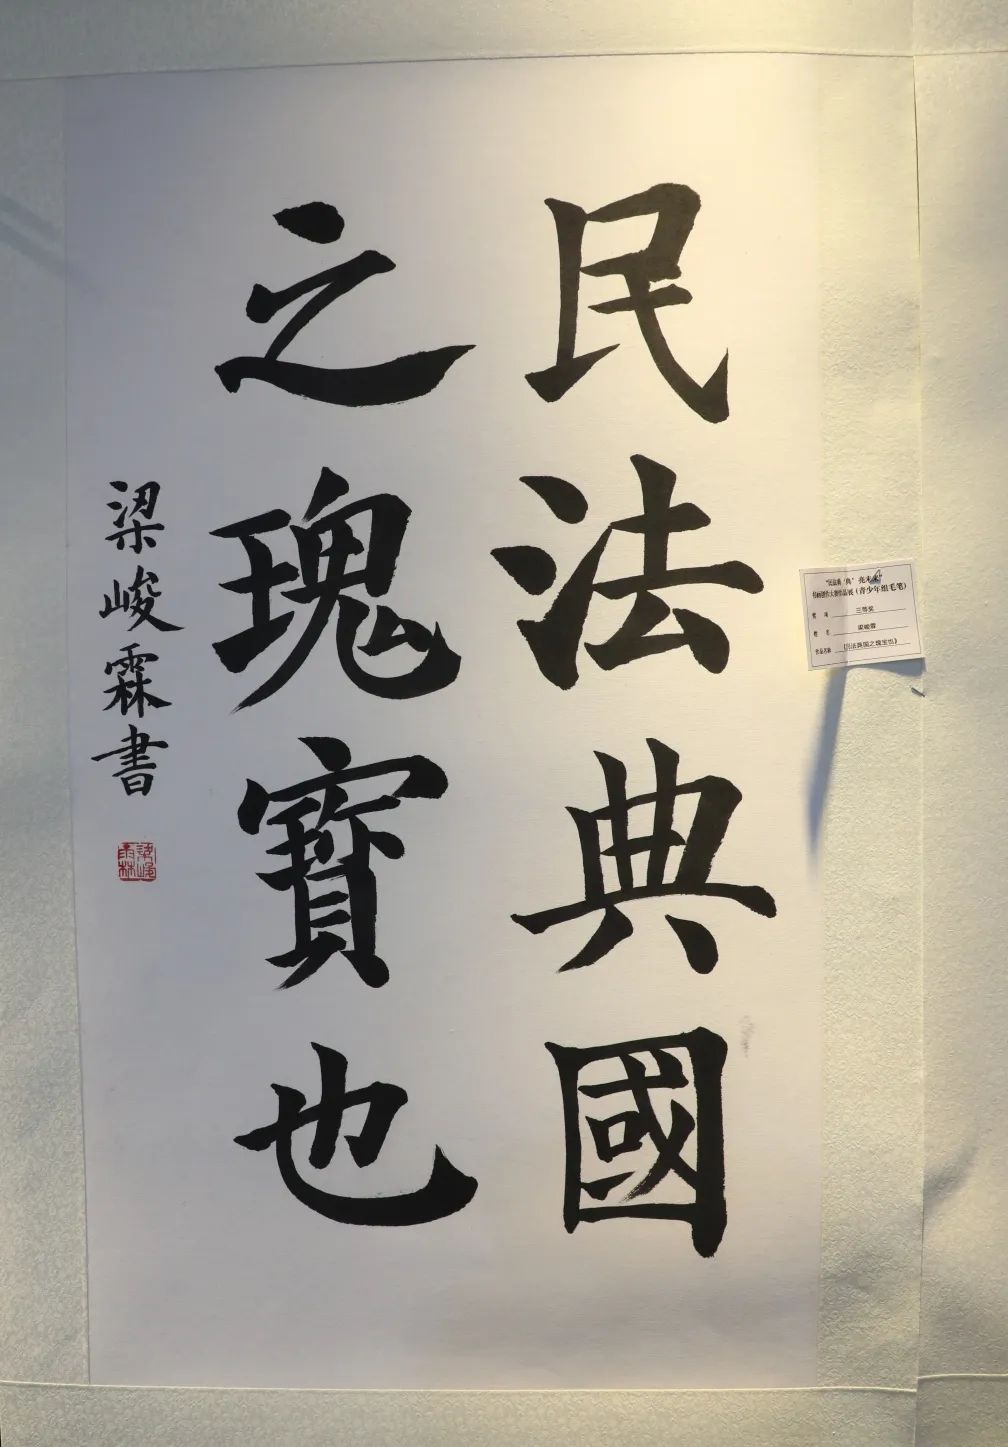 民法典國
之瑰寶也
梁峻霖書
書画创作大赛作品展（青少年组毛笔）
奖 项 三等奖
姓 名 梁峻霖
作品名称 《民法典国之瑰宝也》